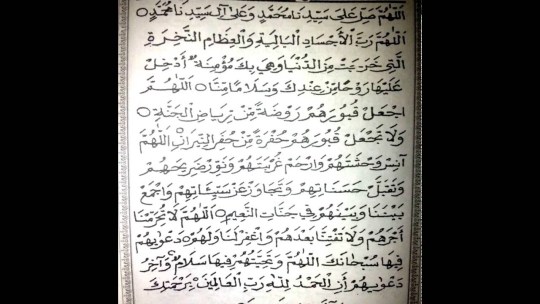 اَللّٰهُمَّ صَلِّ عَلٰى سَيِّدِ نَا مُحَمَّدٍ وَعَلٰى اٰلِ سَيِّدِ نَا مُحَمَّدٍ ○
اَللّٰهُمَّ رَبَّ الْأَجْسَادِ الْبَالِيَةِ وَالْعِظَامِ النَّخِرَةِ
الَّتِيْ خَرَجَتْ مِنَ الدُّنْيَا وَهِيَ بِكَ مُؤْمِنَةٌ اَدْخِلْ
عَلَيْهَا رَوْحًا مِنْ عِنْدِكَ وَسَلَامًا مِنَّا ○ اَللّٰهُمَّ
اجْعَلْ قُبُوْرَهُمْ رَوْضَةً مِنْ رِيَاضِ الْجَنَّةِ ○
وَلَا تَجْعَلْ قُبُوْرَهُمْ حُفْرَةً مِنْ حُفَرِ النِّيْرَانِ اَللّٰهُمَّ
اٰنِسْ وَحْشَتَهُمْ وَارْحَمْ غُرْبَتَهُمْ وَنَوِّرْ ضَرِيْحَهُمْ
وَتَقَبَّلْ حَسَنَاتِهِمْ وَتَجَاوَزْ عَنْ سَيِّئَاتِهِمْ وَاجْمَعْ
بَيْنَنَا وَبَيْنَهُمْ فِيْ جَنَّاتِ النَّعِيْمِ ○ اَللّٰهُمَّ لَا تَحْرِمْنَا
اَجْرَهُمْ وَلَا تَفْتِنَّا بَعْدَهُمْ وَاغْفِرْ لَنَا وَلَهُمْ ○ دَعْوٰيهُمْ
فِيْهَا سُبْحَانَكَ اللّٰهُمَّ وَتَحِيَّتُهُمْ فِيْهَا سَلَامٌ ○ وَاٰخِرُ
دَعْوٰيهُمْ اَنِ الْحَمْدُ لِلّٰهِ رَبِّ الْعَالَمِيْنَ ○ بِرَحْمَتِكَ